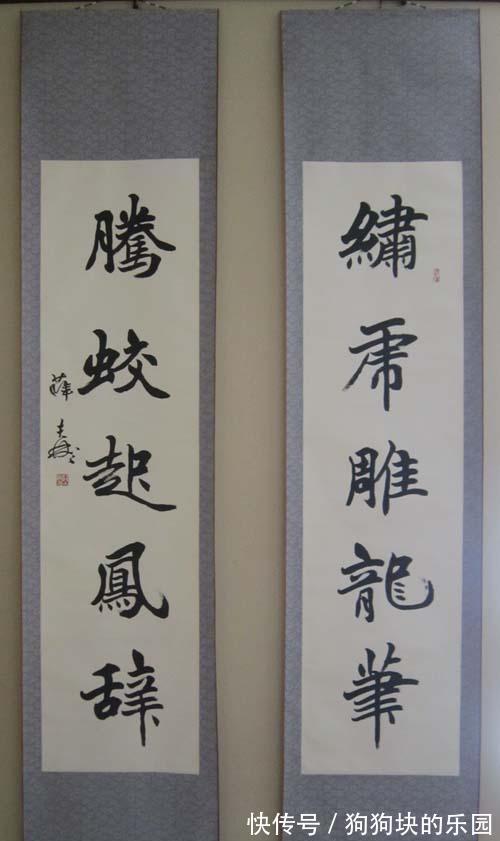 繡虎雕龍筆
騰蛟起鳳辭
薛夫彬
快传号/狗狗块的乐园